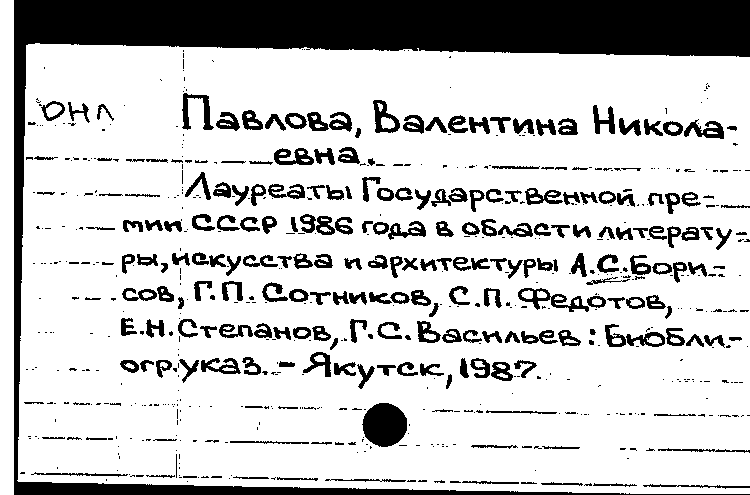 ОНЛ
Павлова, Валентина Никола-
евна.
Лауреаты Государственной пре-
мии СССР 1986 года в области литерату-
ры, искусства и архитектуры А.С.Бори-
сов, Г.П. Сотников, С.П. Федотов,
Е.Н.Степанов, Г.С.Васильев: Библи-
огр.указ. - Якутск, 1987.